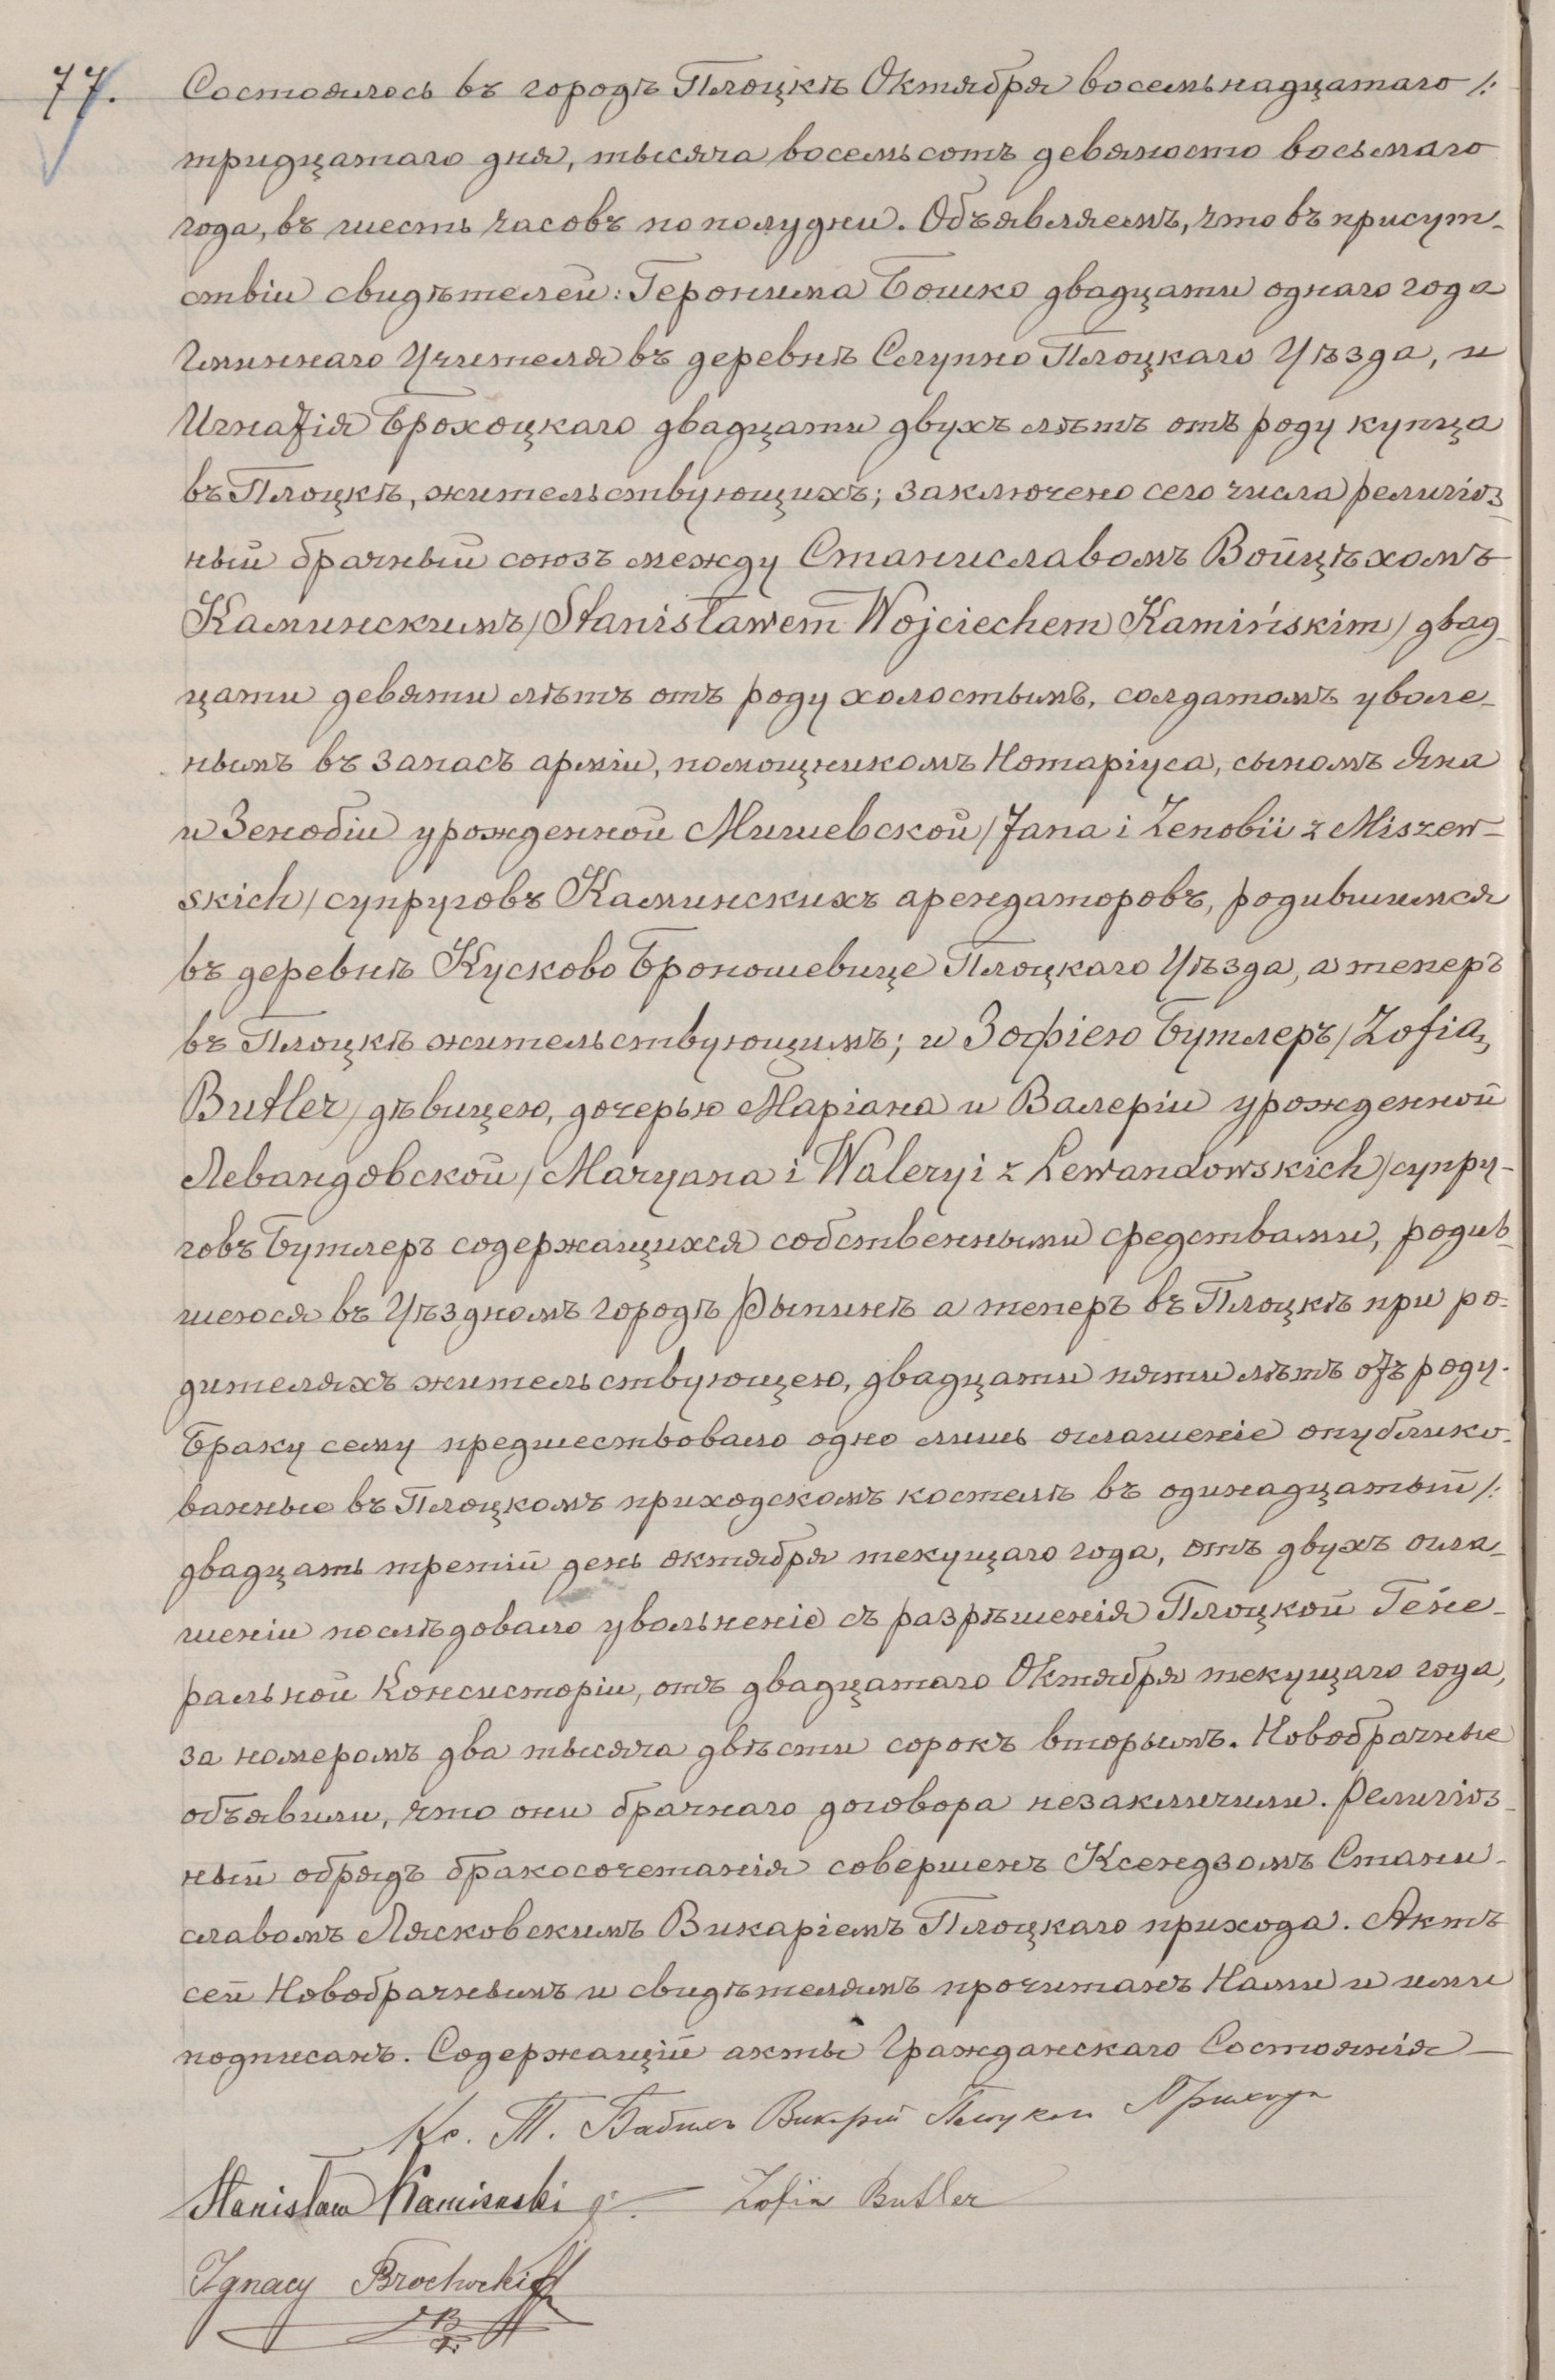 77.
Состоялось въ городѣ Плоцкѣ Октября восемьнадцатаго /:
тридцатаго дня, тысяча восемьсотъ девяносто восьмаго
года, въ шесть часовъ по полудни. Объявляемъ, что въ присут-
ствіи свидѣтелей: Геронима Бошко двадцати однаго года
Гминнаго Учителя въ деревнѣ Слупно Плоцкаго Уѣзда, и
Игнатія Брохоцкаго двадцати двухъ лѣтъ отъ роду купца
въ Плоцкѣ, жительствующихъ; заключено сего числа религіоз-
ный брачный союзъ между Станиславомъ Войцѣхомъ
Каминскимъ /Stanisławem Wojciechem Kamińskim/ двад-
цати девяти лѣтъ отъ роду холостымъ, солдатомъ уволе-
нымъ въ запасъ арміи, помощникомъ Нотаріуса, сыномъ Яна
и Зенобіи урожденной Мишевской /Jana i Zenobii z Miszew-
skich/ супруговъ Каминскихъ арендаторовъ, родившимся
въ деревнѣ Кусково Броношевице Плоцкаго Уѣзда, а теперъ
въ Плоцкѣ жительствующимъ; и Зофіею Бутлеръ /Zofią
Butler/ дѣвицею, дочерью Маріана и Валеріи урожденной
Левандовской /Maryana i Waleryi z Lewandowskich/ супру-
говъ Бутлеръ содержащихся собственными средствами, родив-
шеюся въ Уѣздномъ городѣ Рыпинѣ а теперъ въ Плоцкѣ при ро-
дителяхъ жительствующею, двадцати пяти лѣтъ отъ роду.
Браку сему предшествовало одно лишь оглашеніе опублико-
ванные въ Плоцкомъ приходскомъ костелѣ въ одинадцатый /:
двадцать третій день октября текущаго года, отъ двухъ огла-
шеніи послѣдовало увольненіе съ разрѣшенія Плоцкой Гене-
ральной Консисторіи, отъ двадцатаго Октября текущаго года,
за номеромъ два тысяча двѣсти сорокъ вторымъ. Новобрачные
объявили, что они брачнаго договора незаключили. Религіоз-
ный обрядъ бракосочетанія совершенъ Ксендзомъ Стани-
славомъ Лясковскимъ Викаріемъ Плоцкаго прихода. Актъ
сей Новобрачнымъ и свидѣтелямъ прочитанъ Нами и ими
подписанъ. Содержащій акты Гражданскаго Состоянія —
Кс. Т. Викарій Прихода
Stanisław Kamiński Zofia Butler
Ignacy Brochocki